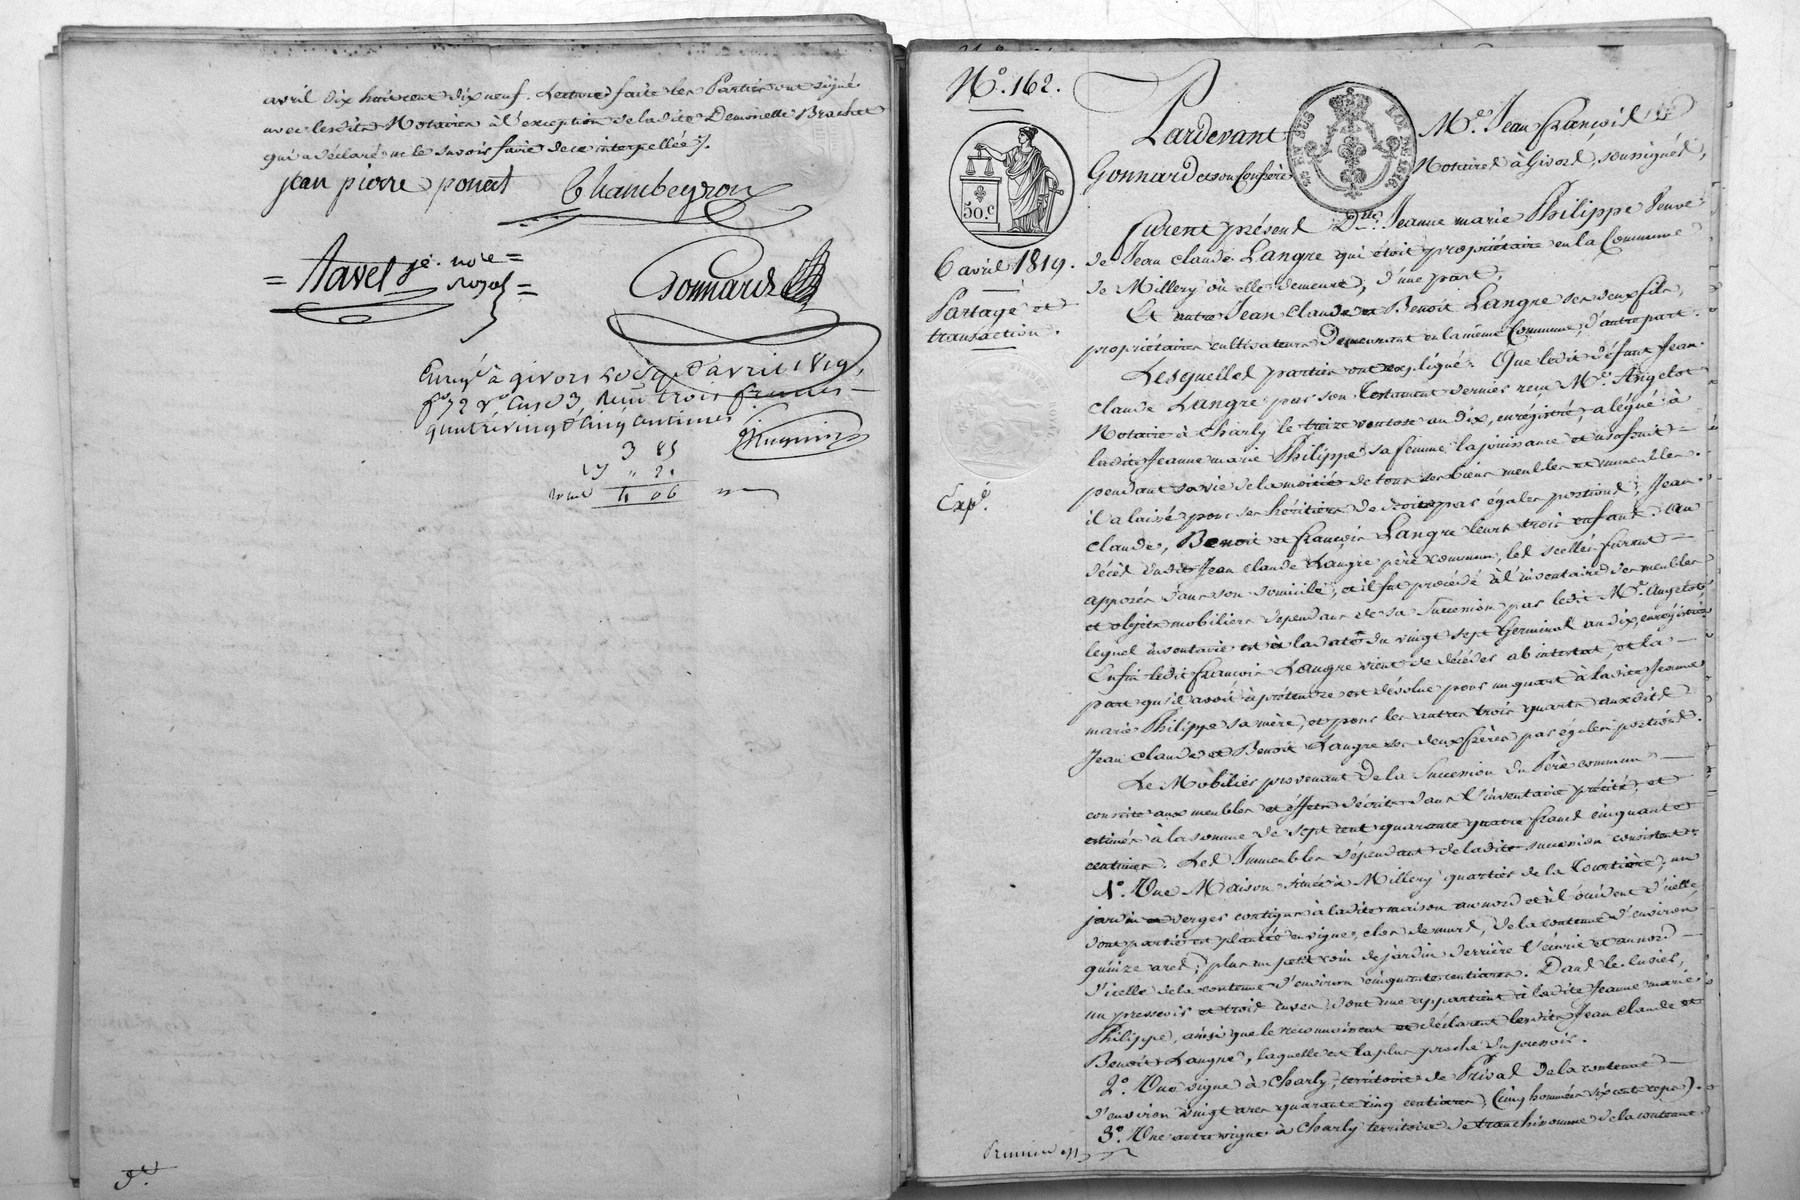 avril dix huit cent dix neuf. Lecture faite les Parties ont signé
avec lesdits Notaires à l'exception de ladite Demoiselle Brachet
qui a déclaré ne le savoir faire de ce interpellée ./.
jean pierre poncet Chambeyron
= Tavel je. nre =
Royal =
Gonnard
Enregé à givors le sept d'avril 1819,
fo 72 vo Case 3, Reçu trois francs
quatrevingt Cinq Centimes
3 85
" 21
4 06
No. 162.
Pardevant Me. Jean françois
Gonnard et son Confrère Notaires à Givors, soussignés,
50.c
6 avril 1819.
Partage et
transaction.
Expé.
Furent présens Dme. Jeanne marie Philippe Veuve
de Jean claude Langre qui étoit propriétaire en la Commune
de Millery où elle demeure, d'une part,
Et entre Jean Claude et Benoit Langre ses deux fils,
propriétaires cultivateurs demeurant en la même Commune, d'autre part.
Lesquelles parties ont expliqué : Que ledit défunt Jean
claude Langre par son testament dernier reçu Me. Angelot
Notaire à Charly le treize ventose an dix, enregistré, a légué à
ladite Jeanne marie Philippe sa femme la jouissance et usufruit
pendant sa vie de la moitié de tous ses biens meubles et immeubles.
il a laissé pour ses héritiers de droit par égales portions, Jean
claude, Benoit et françois Langre leurs trois enfans. Au
décès dudit Jean claude Langre père commun, les scellés furent
apposés dans son domicile, et il fut procédé à l'inventaire des meubles
et objets mobiliers dépendans de sa Succession par ledit Me. Angelot,
lequel inventaire est à la date du vingt sept Germinal an dix, enregistré
Enfin ledit françois Langre vient de décéder ab intestat, et la
part qu'il avoit à prétendre est dévolue pour un quart à ladite Jeanne
marie Philippe sa mère, et pour les autres trois quarts auxdits
Jean claude et Benoit Langre ses deux frères par égales portions.
Le Mobilier provenant de la Succession du Père commun
consiste aux meubles et effets décrits dans l'inventaire précité, et
estimés à la somme de sept cent quarante quatre francs cinquante
centimes. Les Immeubles dépendant de ladite succession consistent :
1o. Une Maison située à Millery quartier de la Tourtière, un
jardin et verger contigus à ladite maison au nord et à l'occident d'icelle,
dont partie est plantée en vigne, clos de murs, de la contenue d'environ
quinze ares ; plus un petit coin de jardin derrière l'écurie et au nord
d'icelle de la contenue d'environ cinquante centiares. Dans le cuvier,
un pressoir et trois cuves dont une appartient à ladite Jeanne marie
Philippe, ainsi que le reconnoissent et déclarent lesdits Jean Claude et
Benoit Langre, laquelle est la plus proche du pressoir.
2o. Une vigne à Charly, territoire de Prival de la contenue
d'environ vingt ares quarante cinq centiares, (cinq hommées six cent ceps).
3o. Une autre vigne à Charly territoire de tranchinomme de la contenue